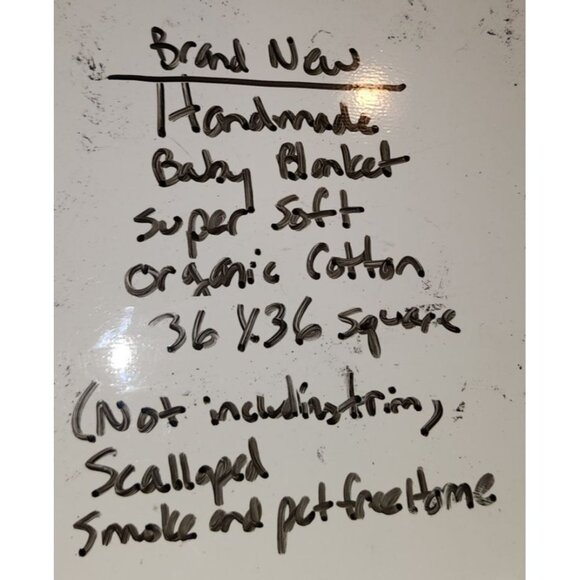 Brand New
Handmade
Baby Blanket
super soft
organic Cotton
36 X 36 square
(Not including trim)
Scalloped
smoke and pet free Home